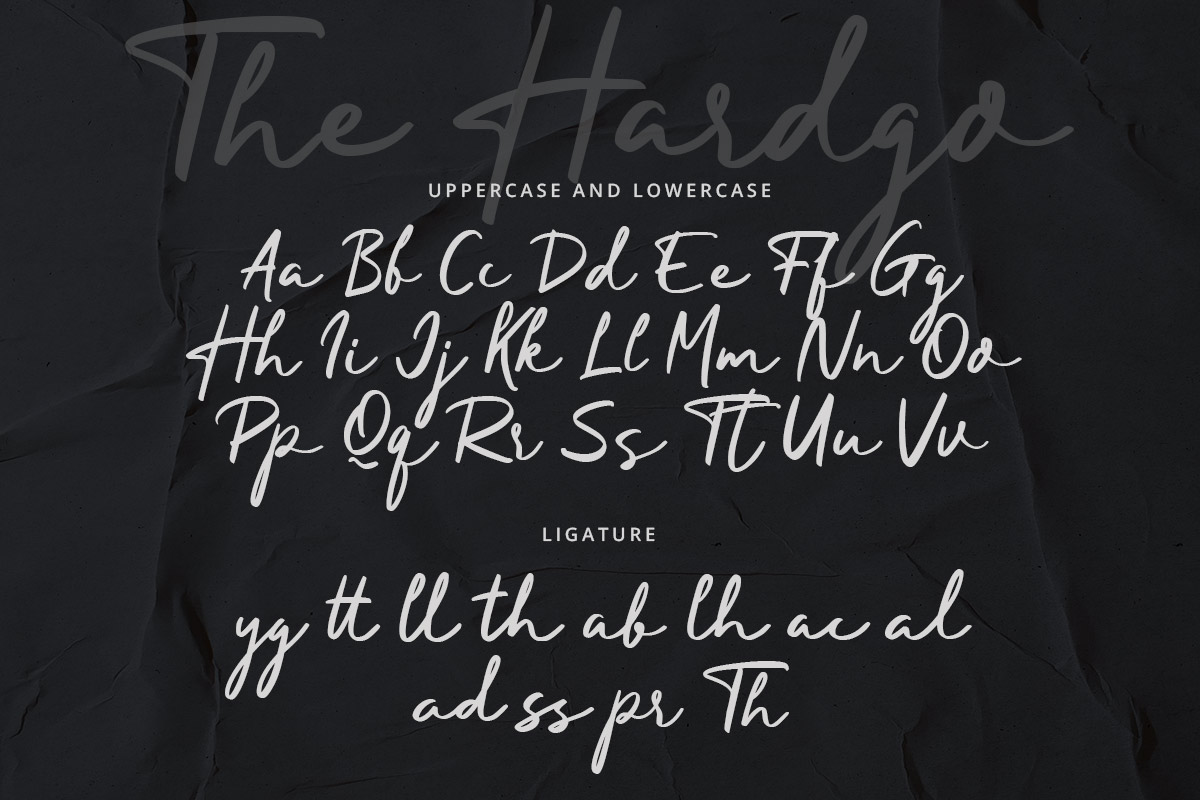 The Hardgo
UPPERCASE AND LOWERCASE
Aa Bb Cc Dd Ee Ff Gg
Hh Ii Jj Kk Ll Mm Nn Oo
Pp Qq Rr Ss Tt Uu Vv
LIGATURE
yg tt ll th ab lh ac al
ad ss pr Th